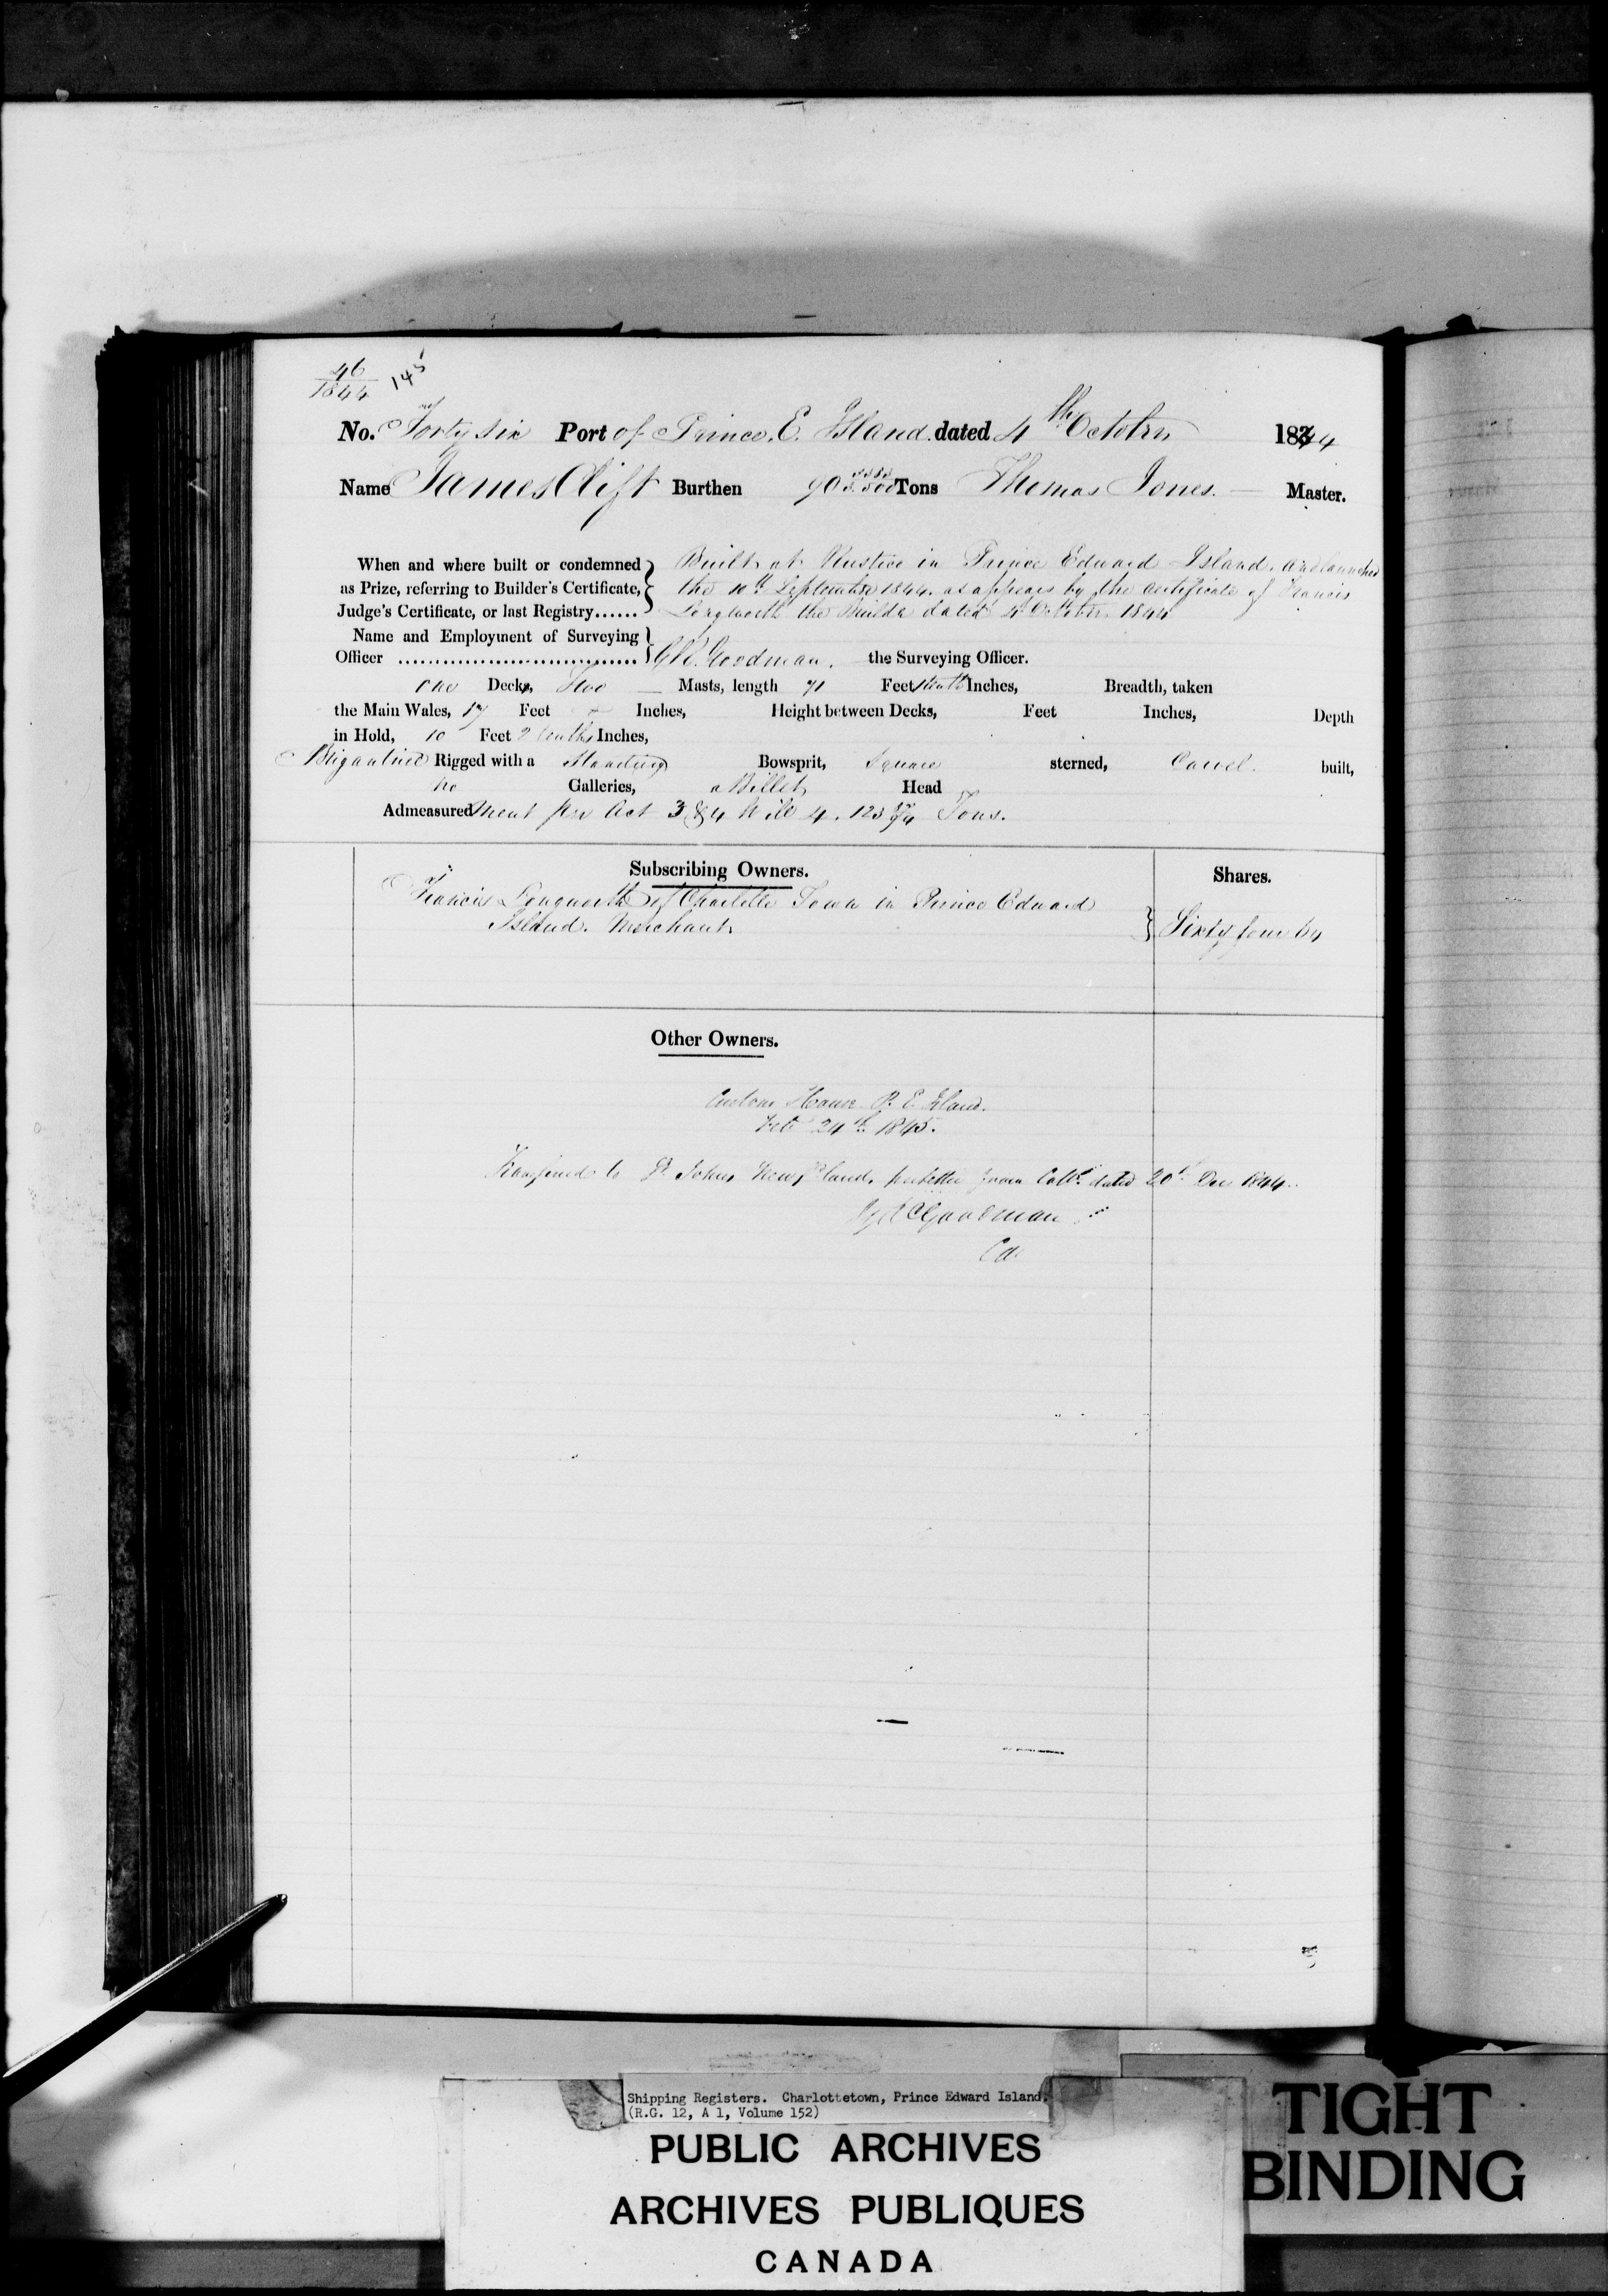 46
1844
145
No. Forty six Port of Prince E. Island dated 4th October 1844
Name James Clift Burthen 90 Tons Thomas Jones. Master.
When and where built or condemned Built at Rustico in Prince Edward Island. and launched
as Prize, referring to Builder's Certificate, the 10th September 1844. as appears by the Certificate of Francis
Judge's Certificate, or last Registry...... Longworth the Builder dated 4 October 1844
Name and Employment of Surveying
Officer .................................. Goodman. the Surveying Officer.
One Decks, Two Masts, length 71 Feet tenths Inches, Breadth, taken
the Main Wales, 17 Feet Inches, Height between Decks, Feet Inches, Depth
in Hold, 10 Feet 2 tenths Inches,
Brigantine Rigged with a Standing Bowsprit, Square sterned, Carvel built,
No Galleries, a Billet Head
Admeasurement per Act 3 & 4 Will 4. 123 /94 Tons.
Subscribing Owners. Shares.
Francis Longworth of Charlotte Town in Prince Edward
Island. Merchant Sixty four 64
Other Owners.
Custom House P. E. Island.
Feb 24th 1845.
Transferred to St. Johns Newfland, per letter from Collr. dated 20th Dec 1844.
Goodman
Shipping Registers. Charlottetown, Prince Edward Island.
(R.G. 12, A 1, Volume 152)
PUBLIC ARCHIVES
ARCHIVES PUBLIQUES
CANADA
TIGHT
BINDING